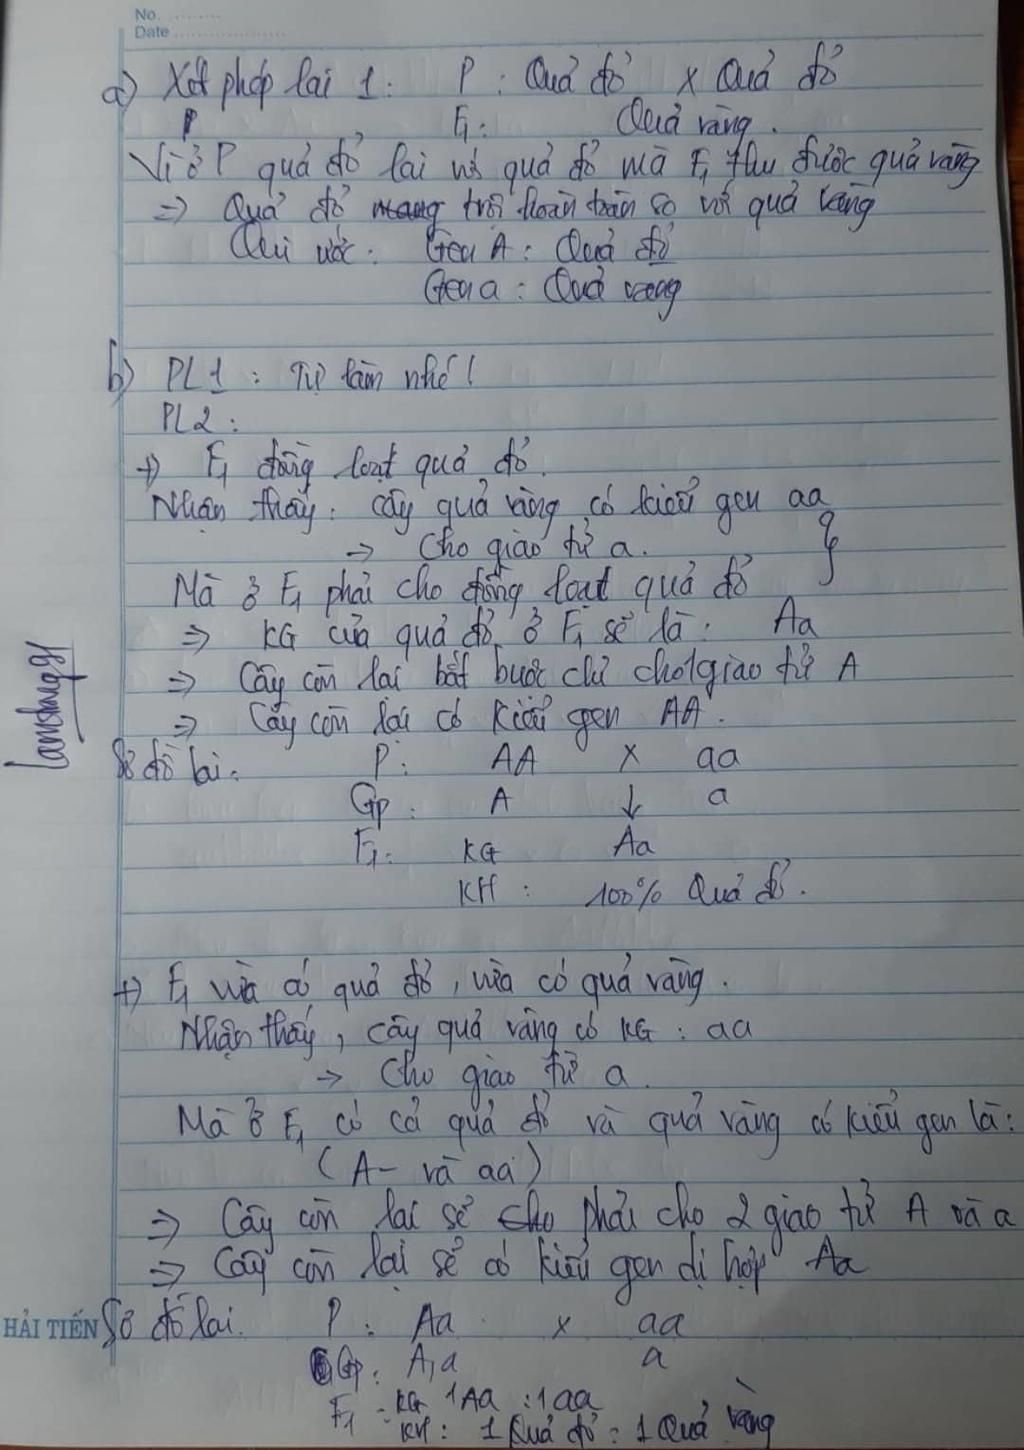 No. .........
Date ...................
a) Xét phép lai 1: P : Quả đỏ x Quả đỏ
P F1: Quả vàng.
Vì ở P quả đỏ lai với quả đỏ mà F1 thu được quả vàng
=> Quả đỏ mang trội hoàn toàn so với quả vàng
Qui ước: Gen A : Quả đỏ
Gen a : Quả vàng
b) PL1 : Tự làm nhé!
PL2 :
+) F1 đồng loạt quả đỏ.
Nhận thấy: cây quả vàng có kiểu gen aa
=> Cho giao tử a.
Mà ở F1 phải cho đồng loạt quả đỏ
=> KG của quả đỏ ở F1 sẽ là: Aa
=> Cây còn lại bắt buộc chỉ cho 1 giao tử A
=> Cây còn lại có kiểu gen AA.
Sơ đồ lai: P: AA x aa
Gp: A ↓ a
F1: KG Aa
KH : 100% Quả đỏ.
lamshang91
+) F1 vừa có quả đỏ, vừa có quả vàng.
Nhận thấy, cây quả vàng có KG : aa
-> Cho giao tử a.
Mà ở F1 có cả quả đỏ và quả vàng có kiểu gen là:
(A- và aa)
=> Cây còn lại sẽ cho phải cho 2 giao tử A và a
=> Cây còn lại sẽ có kiểu gen dị hợp Aa
HẢI TIẾN Sơ đồ lai. P : Aa x aa
Gp: A,a a
F1 : KG 1Aa : 1aa
KH: 1 Quả đỏ : 1 Quả vàng